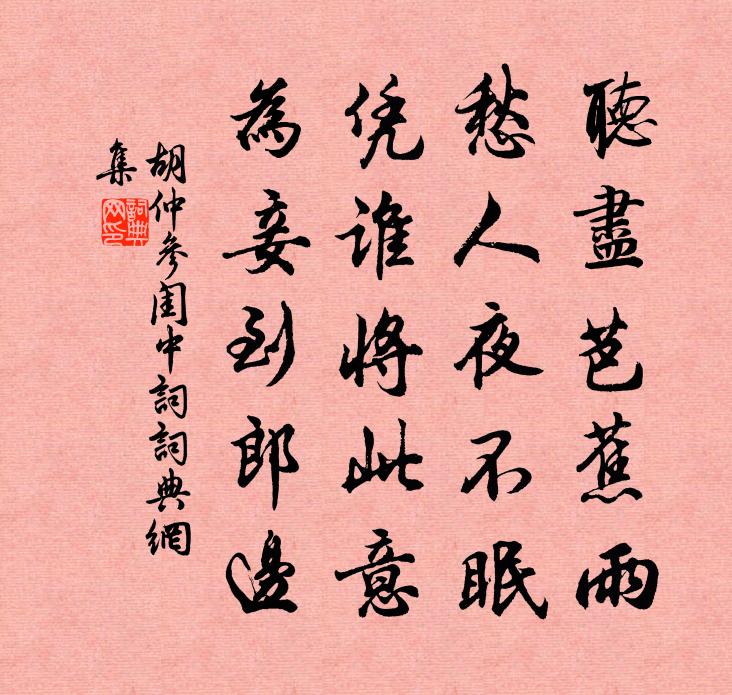 聽盡芭蕉雨
愁人夜不眠
凭谁將此意
為妾到郎邊
胡仲參閨中詞詞典網
集
詞典
网印